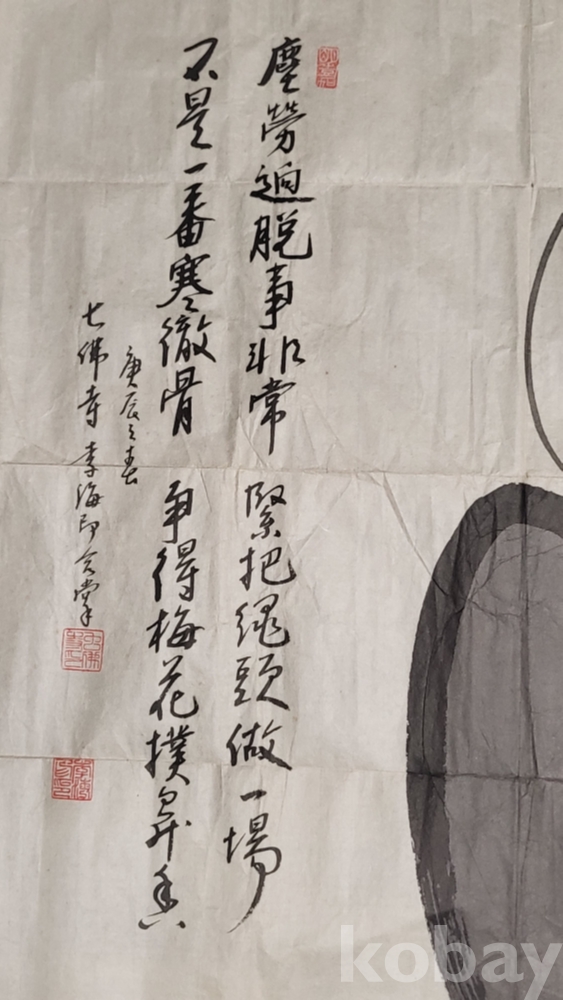 塵勞逈脫事非常 緊把繩頭做一場
不是一番寒徹骨 爭得梅花撲鼻香
庚辰之春
七佛寺 李海印合掌
kobay